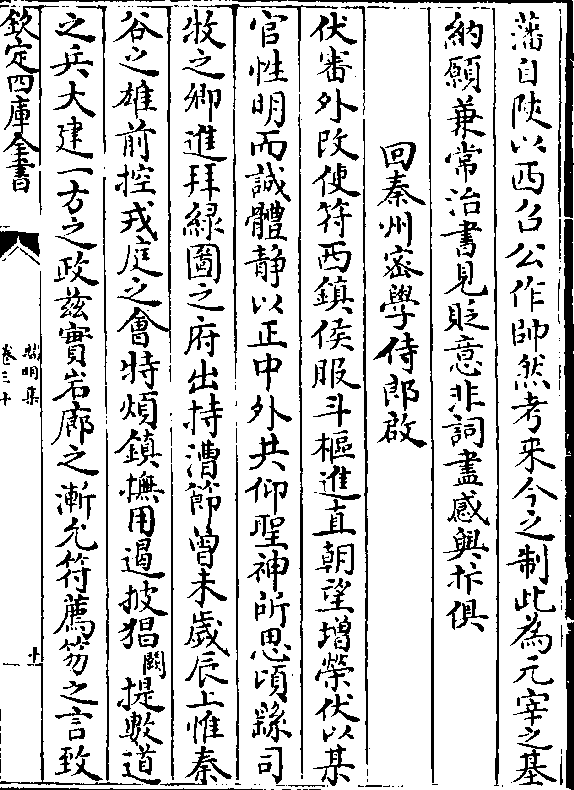 藩自陝以西召公作帥然考来今之制此為元宰之基
納願兼常治書見貶意非詞盡感與抃俱
回秦州密學侍郎啟
伏審外改使符西鎮侯服斗樞進直朝望增榮伏以某
官性明而誠體静以正中外共仰聖神所思頃繇司
牧之卿進拜緑圖之府出持漕節曾未歲辰上惟秦
谷之雄前控戎庭之會特煩鎮撫用遏披猖闕提數道
之兵大建一方之政兹實岩廊之漸允符薦笏之言致
欽定四庫全書
卷三十
十一